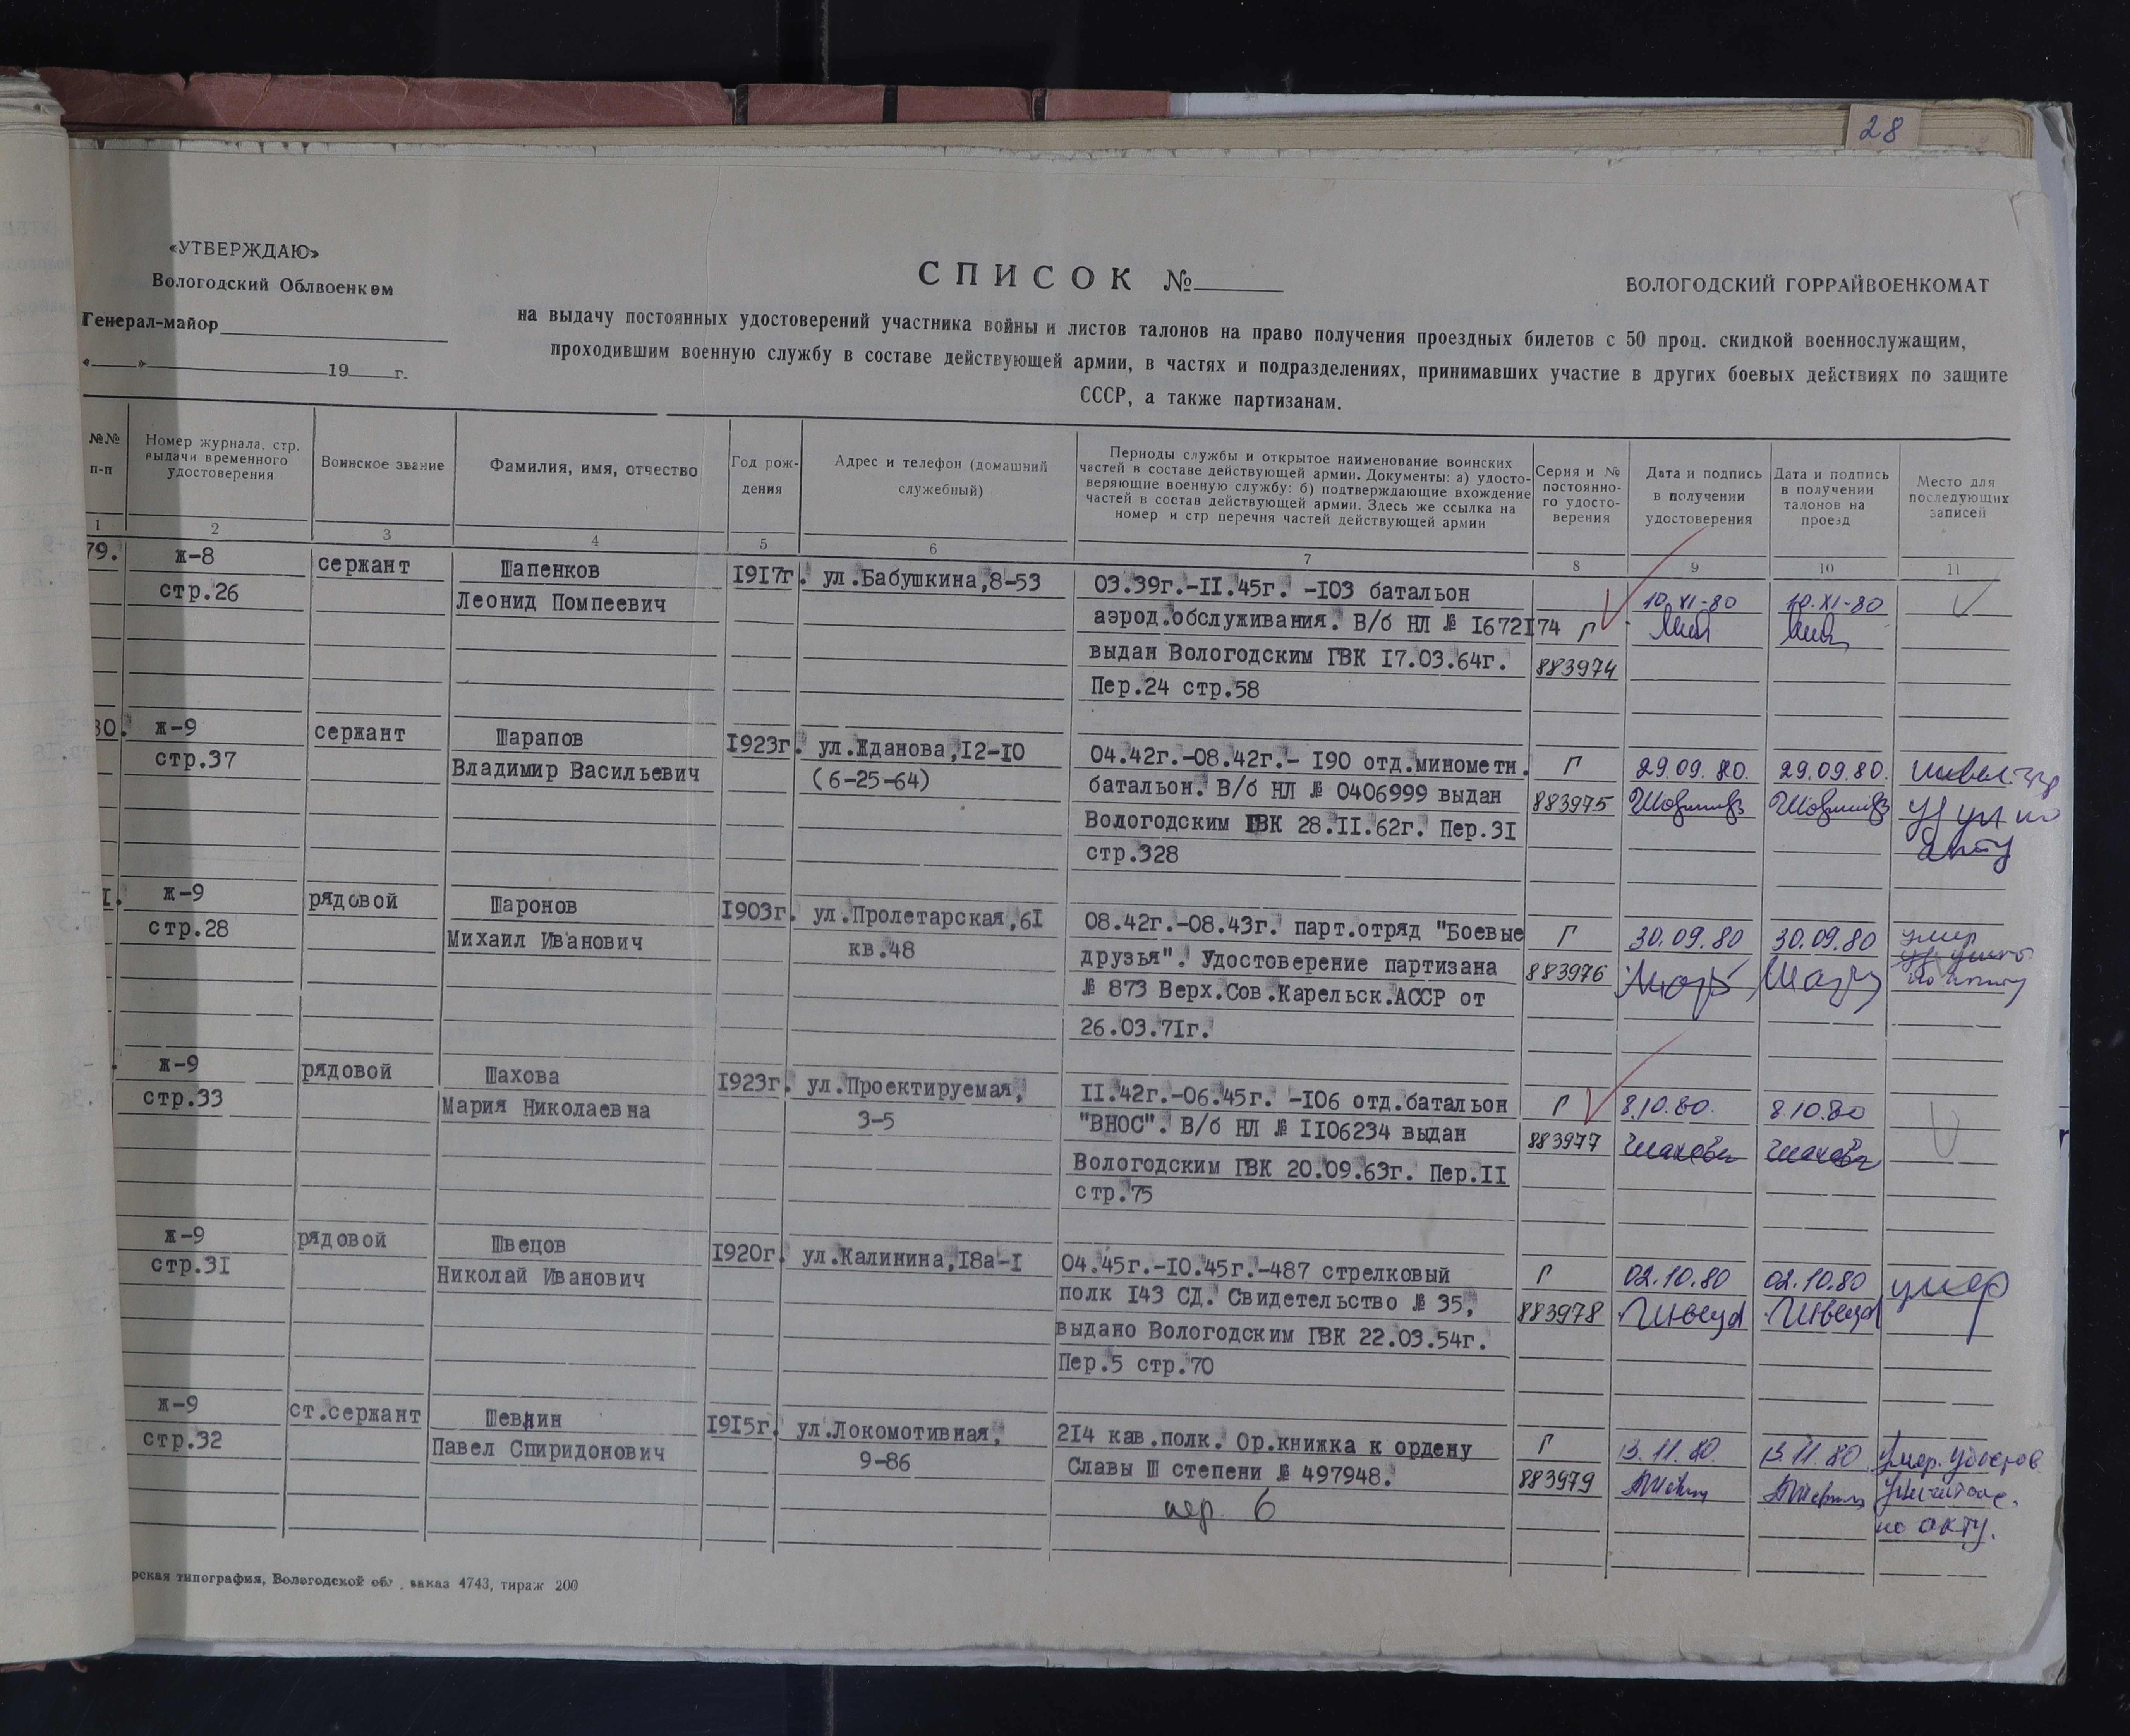 28
«УТВЕРЖДАЮ»
Вологодский Облвоенком
Генерал-майор
«» 19 г.
СПИСОК №
ВОЛОГОДСКИЙ ГОРРАЙВОЕНКОМАТ
на выдачу постоянных удостоверений участника войны и листов талонов на право получения проездных билетов с 50 проц. скидкой военнослужащим,
проходившим военную службу в составе действующей армии, в частях и подразделениях, принимавших участие в других боевых действиях по защите
СССР, а также партизанам.
№№
п-п
Номер журнала, стр.
выдачи временного
удостоверения
Воинское звание
Фамилия, имя, отчество
Год рож-
дения
Адрес и телефон (домашний
служебный)
Периоды службы и открытое наименование воинских
частей в составе действующей армии. Документы: а) удосто-
веряющие военную службу: б) подтверждающие вхождение
частей в состав действующей армии. Здесь же ссылка на
номер и стр перечня частей действующей армии
Серия и №
постоянно-
го удосто-
верения
Дата и подпись
в получении
удостоверения
Дата и подпись
в получении
талонов на
проезд
Место для
последующих
записей
1 2 3 4 5 6 7 8 9 10 11
79. ж-8 сержант Шапенков 1917г. ул.Бабушкина,8-53 03.39г.-11.45г. -103 батальон 10.XI-80 10.XI-80
стр.26 Леонид Помпеевич аэрод.обслуживания. В/б НЛ № 1672174 Г
выдан Вологодским ГВК 17.03.64г. 883974
Пер.24 стр.58
80. ж-9 сержант Шарапов 1923г. ул.Жданова,12-10 04.42г.-08.42г.- 190 отд.минометн. Г 29.09.80. 29.09.80.
стр.37 Владимир Васильевич (6-25-64) батальон. В/б НЛ № 0406999 выдан 883975
Вологодским ГВК 28.11.62г. Пер.31
стр.328 акту
1. ж-9 рядовой Шаронов 1903г. ул.Пролетарская,61 08.42г.-08.43г. парт.отряд "Боевые Г 30.09.80 30.09.80 умер
стр.28 Михаил Иванович кв.48 друзья". Удостоверение партизана 883976
№ 873 Верх.Сов.Карельск.АССР от по акту
26.03.71г.
ж-9 рядовой Шахова 1923г. ул.Проектируемая, 11.42г.-06.45г. -106 отд.батальон Г 8.10.80. 8.10.80
стр.33 Мария Николаевна 3-5 "ВНОС". В/б НЛ № 1106234 выдан 883977 Шахова Шахова
Вологодским ГВК 20.09.63г. Пер.11
стр.75
ж-9 рядовой Швецов 1920г. ул.Калинина,18а-1 04.45г.-10.45г.-487 стрелковый Г 02.10.80 02.10.80 умер
стр.31 Николай Иванович полк 143 СД. Свидетельство № 35, 883978 Швецов Швецов
выдано Вологодским ГВК 22.03.54г.
Пер.5 стр.70
ж-9 ст.сержант Шевнин 1915г. ул.Локомотивная, 214 кав.полк. Ор.книжка к ордену Г 13.11.80. 13.11.80 Умер. Удостов
стр.32 Павел Спиридонович 9-86 Славы III степени № 497948. 883979 уничтоже.
пер. 6 по акту.
рская типография, Вологодской обл., заказ 4743, тираж 200